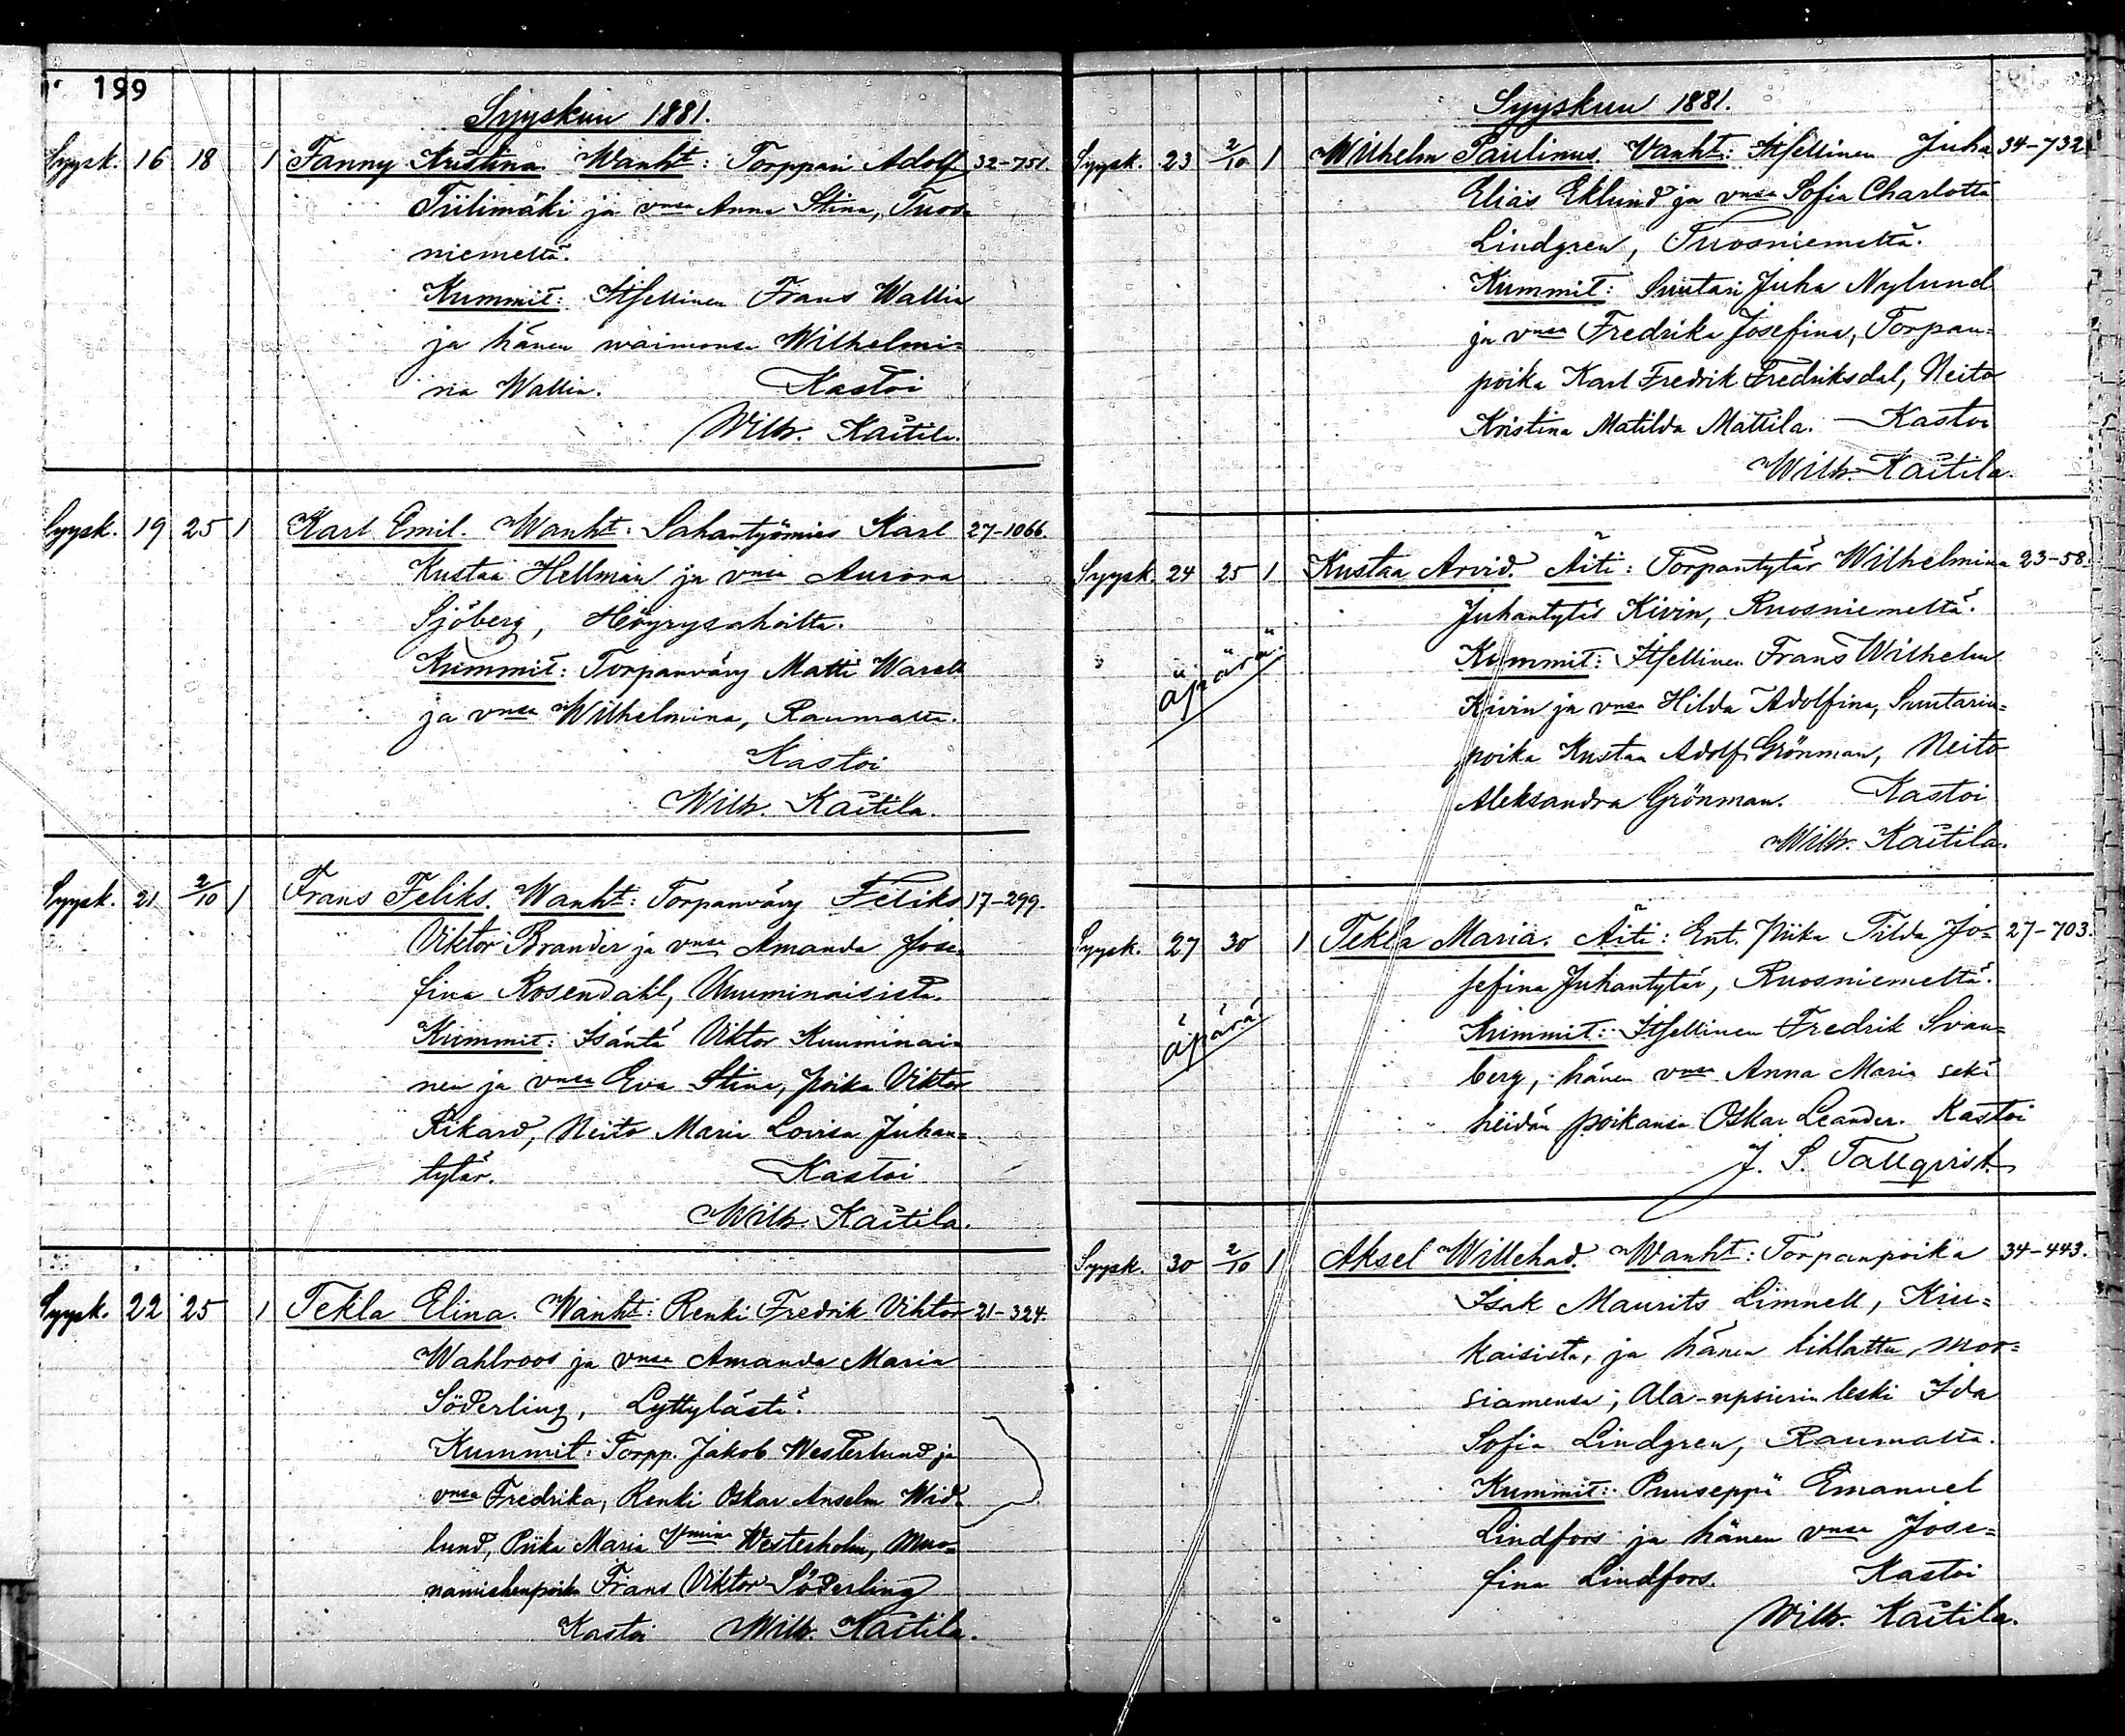 199
Syyskuu 1881.
Syysk. 16 18 1 Fanny Kristina. Wanht: Torppari Adolf 32-751.
Tiilimäki ja vnsa Anna Stina, Tuos-
niemeltä.
Kummit: Itsellinen Frans Wallin
ja hänen waimonsa Wilhelmi-
na Wallin. Kastoi
Wilh. Kaitila.
Syysk. 19 25 1 Karl Emil. Wanht: Sahantyömies Karl 27-1066.
Kustaa Hellman ja vnsa Aurora
Sjöberg, Höyrysahoilta.
Kummit: Torpanvävy Matti Warell
ja vnsa Wilhelmina, Raumalta.
Kastoi
Wilh. Kaitila.
Syysk. 21 2/10 1 Frans Feliks. Wanht: Torpanvävy Feliks 17-299.
Viktor Brander ja vnsa Amanda Jose-
fina Rosendahl,
Kummit: Isäntä Viktor Kuuminai-
nen ja vnsa Eva Stina, poika Viktor
Rikard, Neito Maria Lovisa Juhan-
tytär. Kastoi
Wilh. Kaitila.
Syysk. 22 25 1 Tekla Elina. Wanht: Renki Fredrik Vihtor 21-324.
Wahlroos ja vnsa Amanda Maria
Söderling, Lyttylästä.
Kummit: Torpp. Jakob Westerlund ja
vnsa Fredrika, Renki Oskar Anselm Wid-
lund, Piika Maria Vmina Westerholm, Muo-
namiehenpoika Frans Viktor Söderling
Kastoi Wilh. Kaitila.
Syyskuu 1881.
Syysk. 23 2/10 1 Wilhelm Paulinus. Vanht: Itsellinen Juha 34-732.
Elias Eklund ja vnsa Sofia Charlotta
Lindgren, Tuosniemeltä.
Kummit: Suutari Juha Nylund
ja vnsa Fredrika Josefina, Torpan-
poika Karl Fredrik Fredriksdal, Neito
Kristina Matilda Mattila. Kastoi
Wilh. Kaitila.
Syysk. 24 25 1 Kustaa Arvid. Äiti: Torpantytär Wilhelmina 23-58.
Juhantytär Kivin, Ruosniemeltä.
äpärä.
Kummit: Itsellinen Frans Wilhelm
Kivin ja vnsa Hilda Adolfina, Suutarin-
poika Kustaa Adolf Grönman, Neito
Aleksandra Grönman. Kastoi
Wilh. Kaitila.
Syysk. 27 30 1 Tekla Maria. Äiti: Ent. Piika Tilda Jo- 27-703.
sefina Juhantytär, Ruosniemeltä.
äpärä
Kummit: Itsellinen Fredrik Svan-
berg, hänen vnsa Anna Maria sekä
heidän poikansa Oskar Leander. Kastoi
J. S. Tallqvist.
Syysk. 30 2/10 1 Aksel Willehad. Wanht: Torpanpoika 34-443.
Isak Maurits Limnell, Kiu-
kaisista, ja hänen kihlattu mor-
siamensa, Ala-upsierin leski Ida
Sofia Lindgren, Raumalta.
Kummit: Puuseppä Emanuel
Lindfors ja hänen vnsa Jose-
fina Lindfors. Kastoi
Wilh. Kaitila.